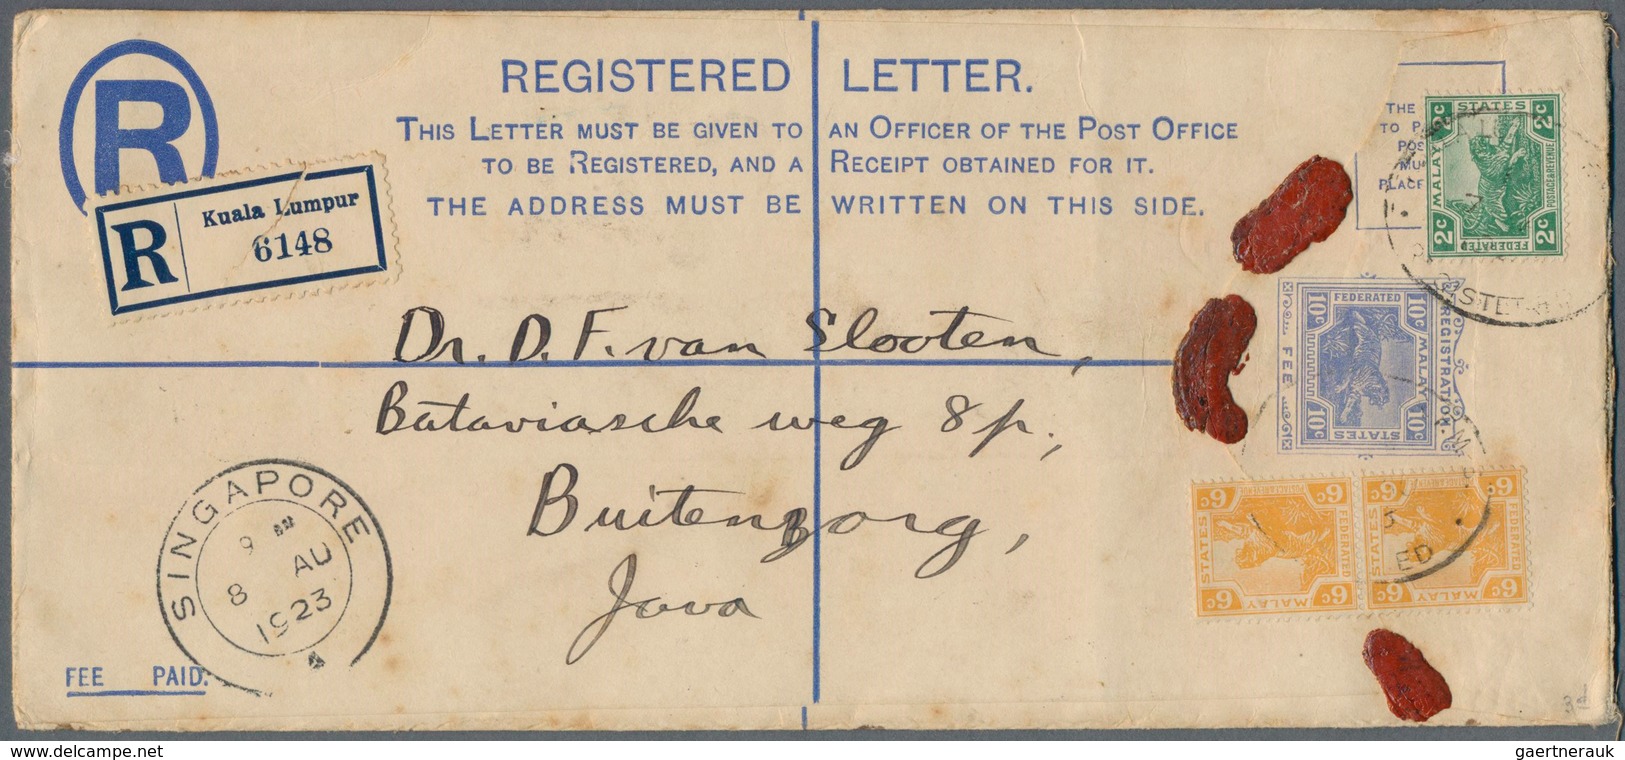 REGISTERED LETTER.
THIS LETTER MUST BE GIVEN TO AN OFFICER OF THE POST OFFICE
TO BE REGISTERED, AND A RECEIPT OBTAINED FOR IT.
THE ADDRESS MUST BE WRITTEN ON THIS SIDE.
R
R
Kuala Lumpur
6148
THE
TO P
POS
MU
PLACE
2c STATES 2c
MALAY
POSTAGE & REVENUE
2c FEDERATED 2c
FEDERATED
10c 10c
MALAY
STATES
10c 10c
REGISTRATION
FEE
Dr. D. F. van Slooten,
Bataviasche weg 8p.,
Buitenzorg,
Java
6c 6c
STATES
FEDERATED
6c MALAY 6c
6c 6c
STATES
FEDERATED
6c MALAY 6c
ED
SINGAPORE
9 AM
8 AU
1923
FEE PAID.
gaertnerauk